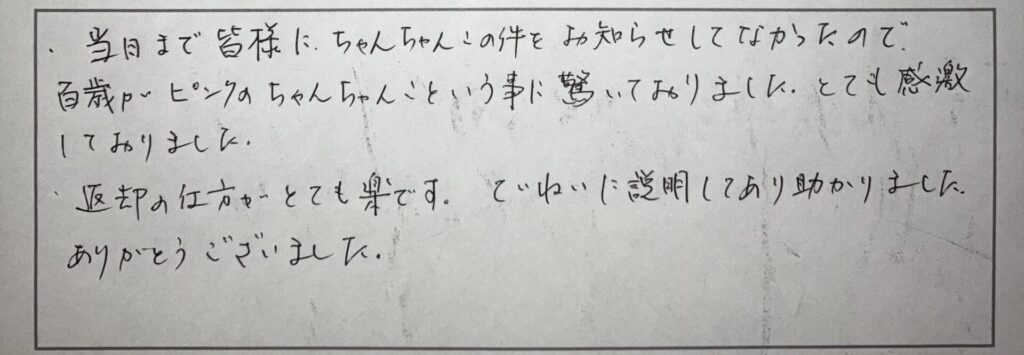 ・当日まで皆様に、ちゃんちゃんこの件をお知らせしてなかったので、
百歳がピンクのちゃんちゃんこという事に驚いておりました。とても感激
しておりました。
・返却の仕方がとても楽です。ていねいに説明してあり助かりました。
ありがとうございました。